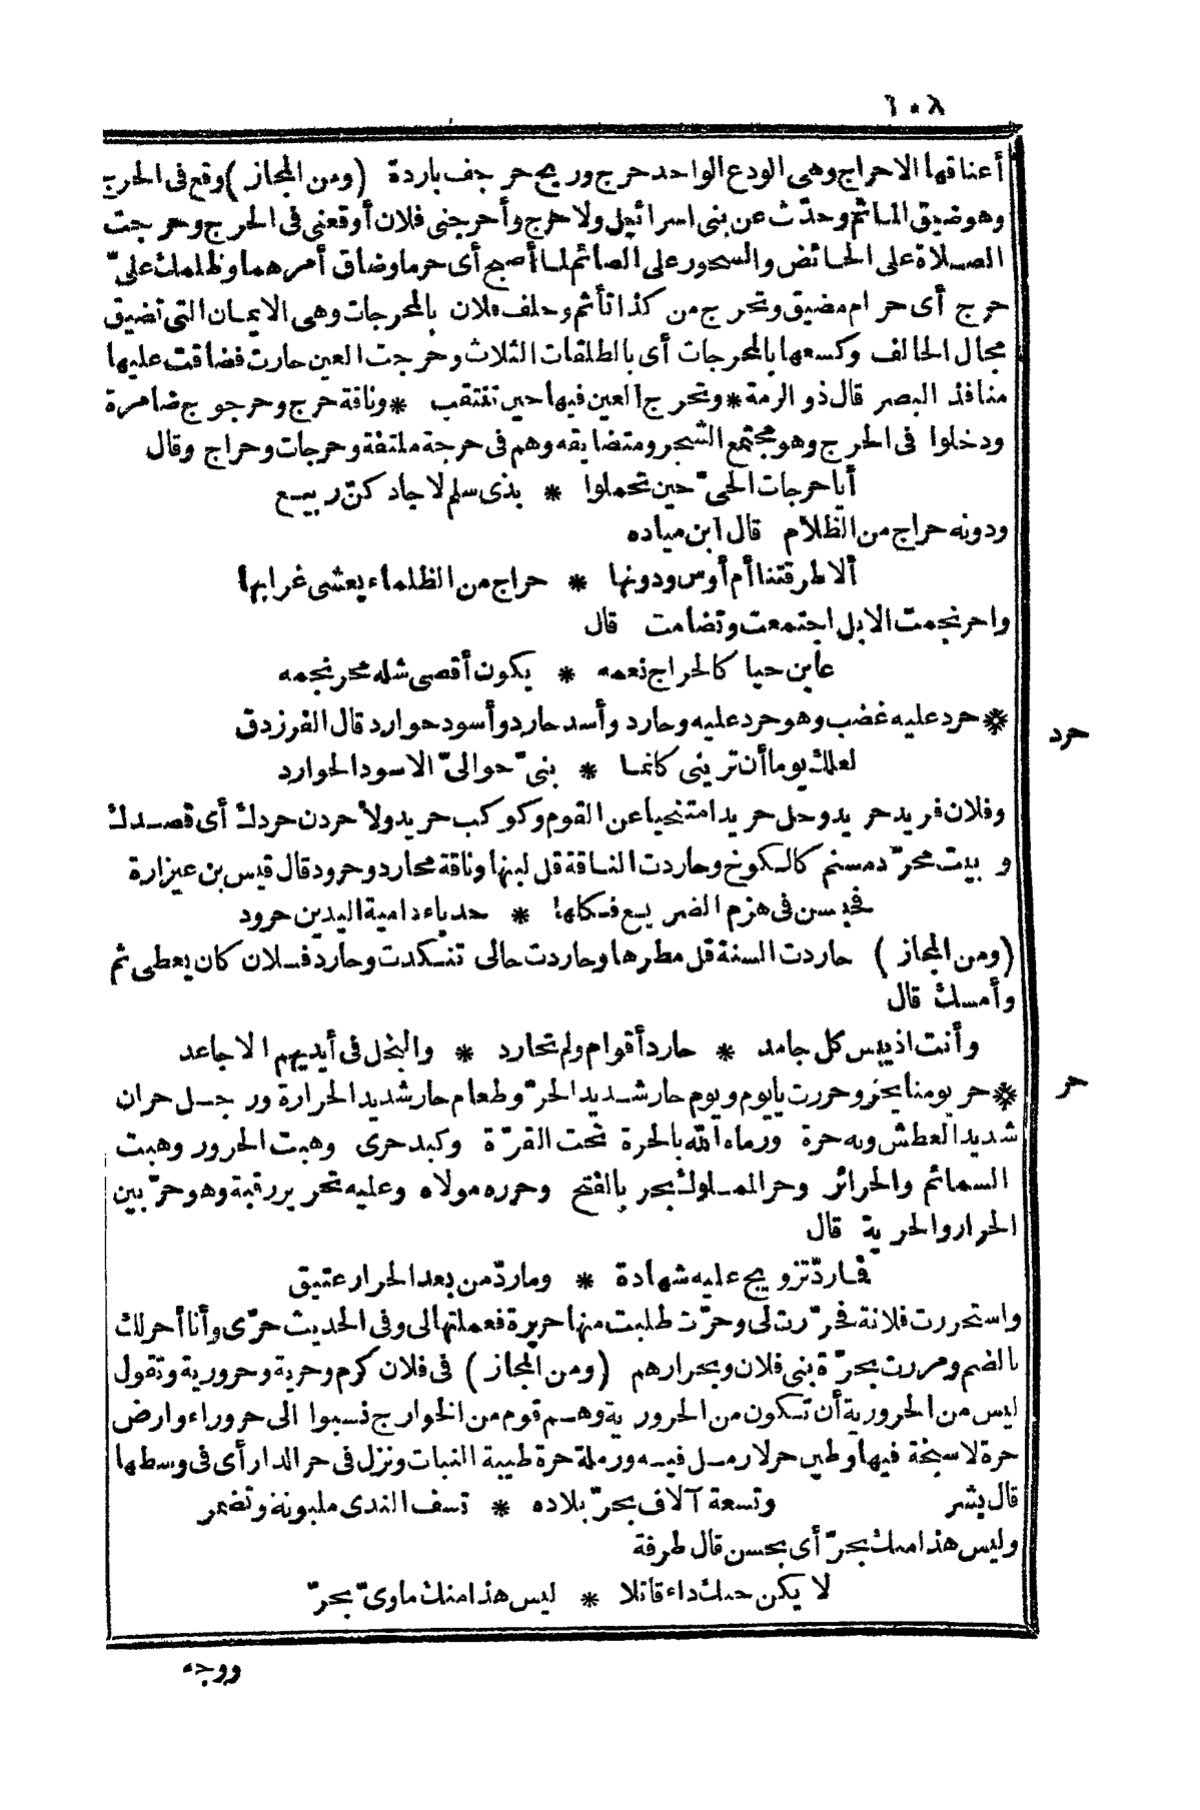 ١٠٨
أعناقها الاحراج وهى الودع الواحد حرج وريح حرجف باردة (ومن المجاز) وقع فى الحرج
وهو ضيق المأثم وحدّث عن بنى اسرائيل ولا حرج وأحرجنى فلان أوقعنى فى الحرج وحرجت
الصلاة على الحائض والسحور على الصائم لما أصبح أى حرما وضاق أمرهما وظلمك علىّ
حرج أى حرام مضيق وتحرج من كذا تأثم وحلف فلان بالمحرجات وهى الايمان التى تضيق
مجال الحالف وكسعها بالمحرجات أى بالطلقات الثلاث وحرجت العين حارت فضاقت عليها
منافذ البصر قال ذو الرمة * وتحرج العين فيها حين تنتقب * وناقة حرج وحرجوج ضامرة
ودخلوا فى الحرج وهو مجتمع الشجر ومتضايقه وهم فى حرجة ملتفة وحرجات وحراج وقال
أيا حرجات الحىّ حين تحملوا * بذى سلم لا جادكنّ ربيع
ودونه حراج من الظلام قال ابن مياده
ألا طرقتنا أم أوس ودونها * حراج من الظلماء يعشى غرابها
واحرنجمت الابل اجتمعت وتضامت قال
عاين حيا كالحراج نعمه * يكون أقصى شله محرنجمه
* حرد عليه غضب وهو حرد عليه وحارد وأسد حارد وأسود حوارد قال الفرزدق
حرد
لعلك يوما أن ترينى كانما * بنىّ حوالىّ الاسود الحوارد
وفلان فريد حريد وحل حريدا متنحيا عن القوم وكوكب حريد ولأحردن حردك أى قصدك
وبيت محرّد مسنم كالكوخ وحاردت الناقة قل لبنها وناقة محارد وحرود قال قيس بن عيزارة
فحبسن فى هزم الضريع فكلها * حدباء دامية اليدين حرود
(ومن المجاز) حاردت السنة قل مطرها وحاردت حالى تنكدت وحارد فلان كان يعطى ثم
وأمسك قال
وأنت اذ يبس كل جامد * حارد أقوام ولم تحارد * والبخل فى أيديهم الاجاعد
* حر يومنا يحر وحررت يا يوم ويوم حار شديد الحرّ وطعام حار شديد الحرارة ورجل حران
حر
شديد العطش وبه حرة ورماه الله بالحرة تحت القرّة وكبد حرى وهبت الحرور وهبت
السمائم والحرائر وحر المملوك يحر بالفتح وحرره مولاه وعليه تحرير رقبة وهو حرّ بين
الحرار والحرية قال
فما ردّ تزويج عليه شهادة * وما ردّ من بعد الحرار عتيق
واستحررت فلانة فحرّرت لى وحرّت طلبت منها حريرة فعملتها لى وفى الحديث حرّى وأنا أحر لك
بالضم ومررت بحرّة بنى فلان وبحرارهم (ومن المجاز) فى فلان كرم وحرية وحرورية وتقول
ليس من الحرورية أن تكون من الحرورية وهم قوم من الخوارج نسبوا الى حروراء وارض
حرة لا سبخة فيها وطين حر لا رمل فيه ورملة حرة طيبة النبات ونزل فى حر الدار أى فى وسطها
قال بشر وتسعة آلاف بحرّ بلاده * تسف الندى ملبونة وتضمر
وليس هذا منك بحرّ أى بحسن قال طرفة
لا يكن حبك داء قاتلا * ليس هذا منك ماوىّ بحرّ
ووجه